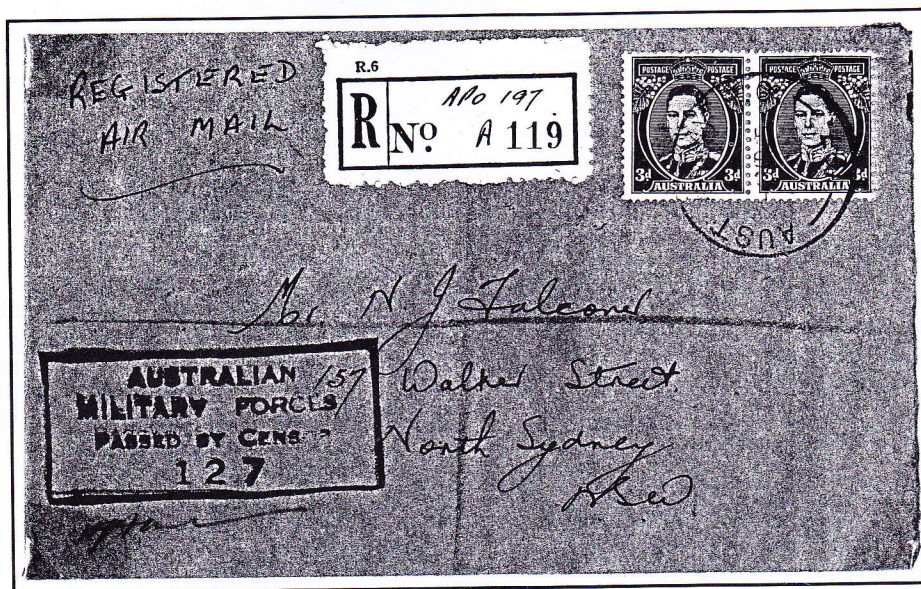 REGISTERED
AIR MAIL
R.6
R No. APO 197
A 119
POSTAGE POSTAGE
3d 3d
AUSTRALIA
POSTAGE POSTAGE
3d 3d
AUSTRALIA
AUST.
Mr. N J Falconer
157 Walker Street
North Sydney
NSW
AUSTRALIAN
MILITARY FORCES
PASSED BY CENSOR
127